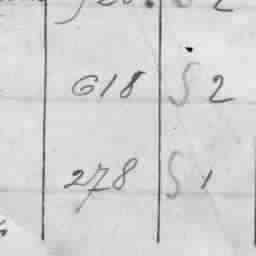 618 S 2
278 S 1